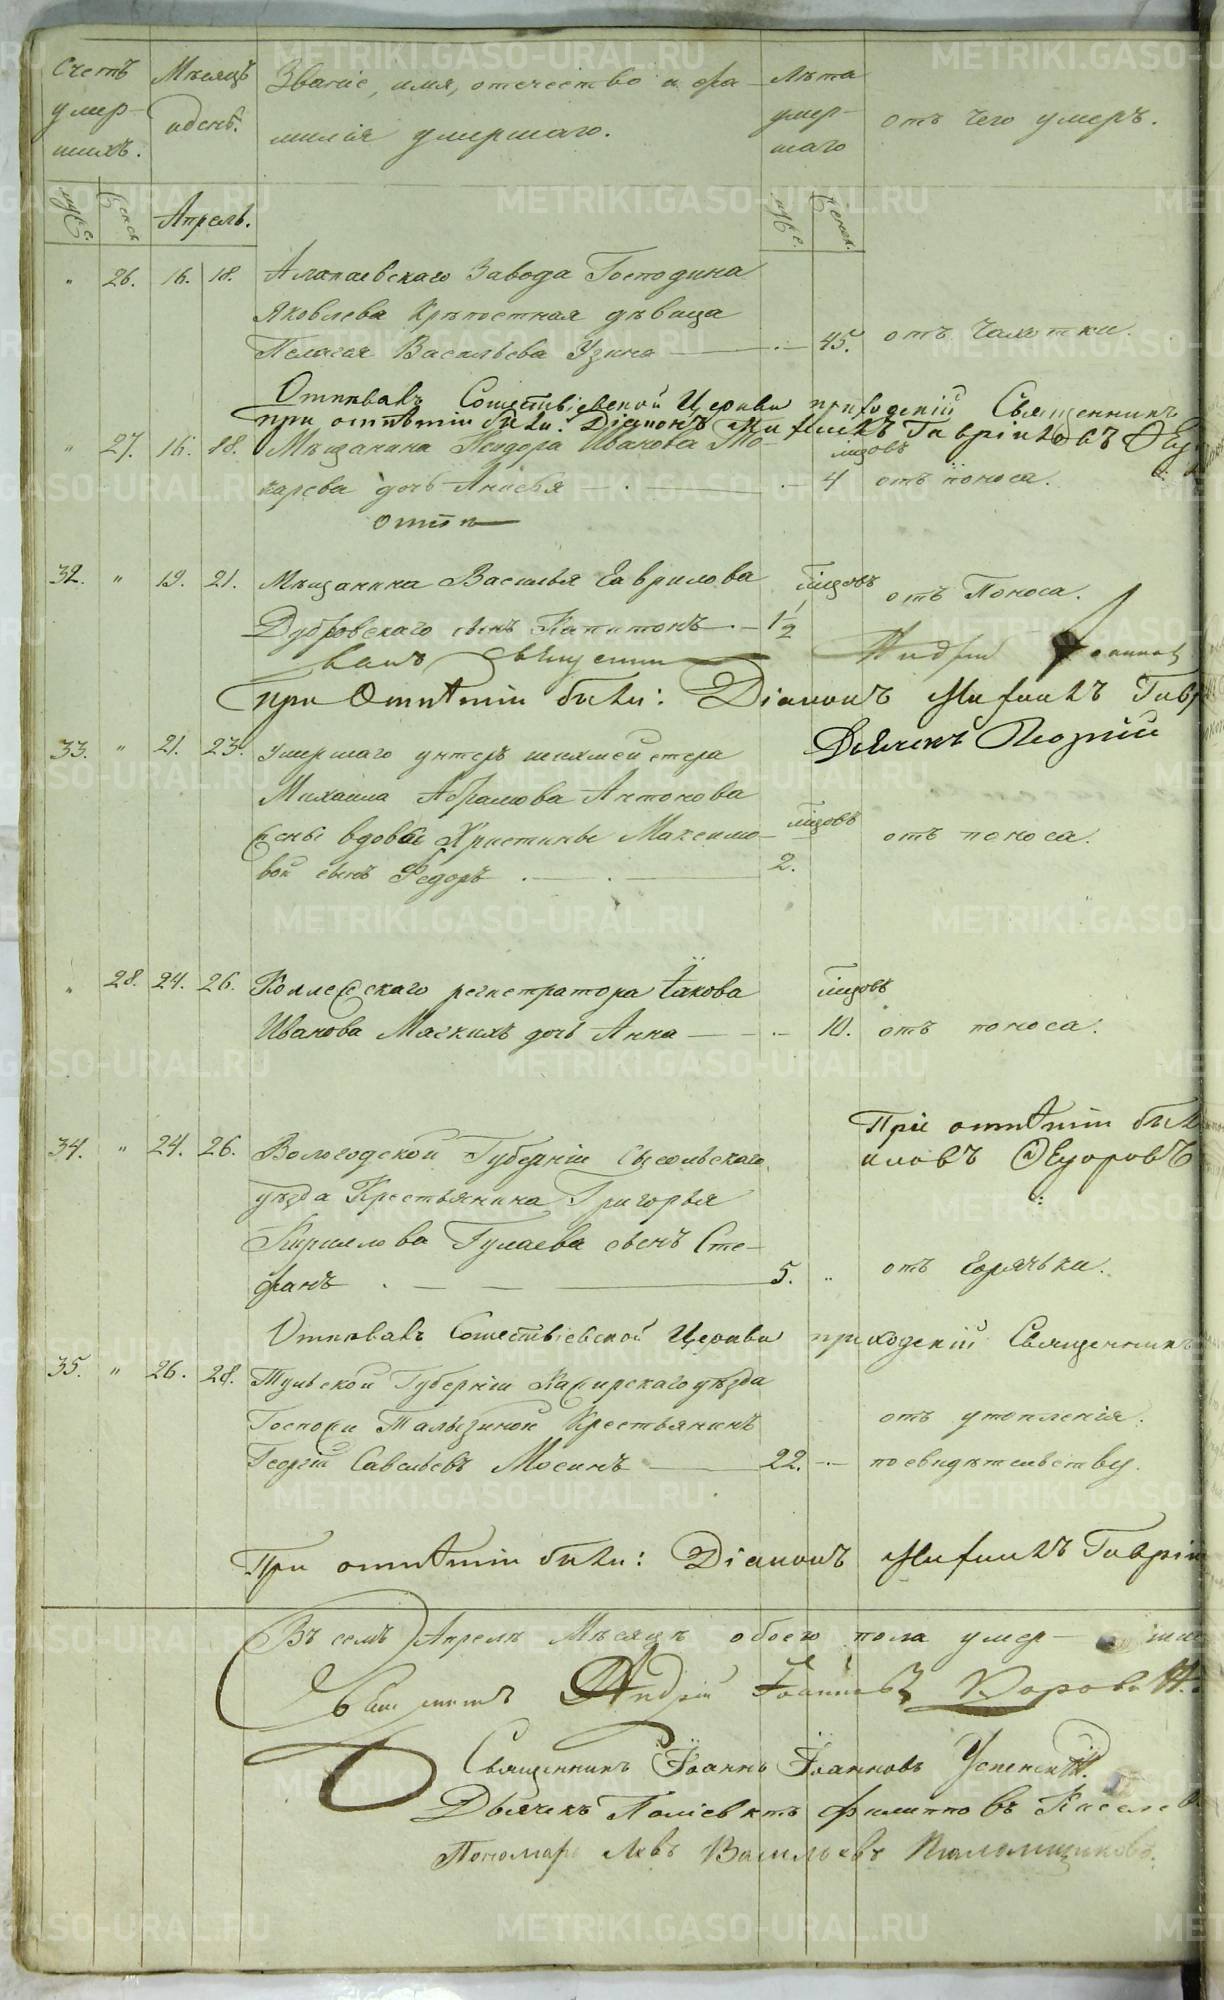 Счетъ умер- шихъ. Мѣсяцъ и день. Званіе, имя, отечество и фа- милія умершаго. Лѣта умер- шаго отъ чего умеръ.
муж. женск. Апрель. муж. женск.
" 26. 16. 18. Алапаевскаго Завода Господина
Яковлева Крѣпостная дѣвица
Пелагея Васильева Узина 45. отъ Чахотки.
Отпѣвалъ Сошествіевской Церкви приходскій Священникъ
при отпѣтіи были: Діаконъ Михаилъ Гавріиловъ
" 27. 16. 18. Мѣщанина Исидора Иванова То- мѣсцовъ
карева дочь Анисья 4 отъ поноса.
32. " 19. 21. Мѣщанина Василья Гаврилова мѣсцовъ отъ Поноса.
Дубровскаго сынъ Капитонъ 1/2
Священникъ Андрей Іоанновъ
При Отпѣтіи были: Діаконъ Михаилъ Гавр
Дьячекъ
33. " 21. 23. Умершаго унтеръ шихтмейстера
Михаила Абрамова Антонова
жены вдовы Христины Максимо- мѣсцовъ отъ поноса.
вой сынъ Федоръ 2.
" 28. 24. 26. Коллежскаго регистратора Іакова мѣсцовъ
Иванова Мягкихъ дочь Анна 10. отъ поноса.
При отпѣтіи был
34. " 24. 26. Вологодской Губерніи Сысольскаго иловъ Ѳедоровъ
уѣзда Крестьянина Григорья
Кирилова Гулаева сынъ Сте-
фанъ 5. " отъ Горячьки.
Отпѣвалъ Сошествіевской Церкви приходскій Священникъ
35. " 26. 28. Тульской Губерніи Каширскаго уѣзда
Госпожи Талызиной Крестьянинъ отъ утопленія.
Георгій Савельевъ Мосинъ 22. посвидѣтельству.
При отпѣтіи были: Діаконъ Михаилъ Гаврі
Въ семъ Апрелѣ Мѣсяцѣ обоего пола умер-
Священникъ Андрей Іоанновъ
Священникъ Іоаннъ Іоанновъ Успенскій.
Дьячекъ Поліевктъ Филипповъ Киселев
Пономарь Левъ Васильевъ
METRIKI.GASO-URAL.RU